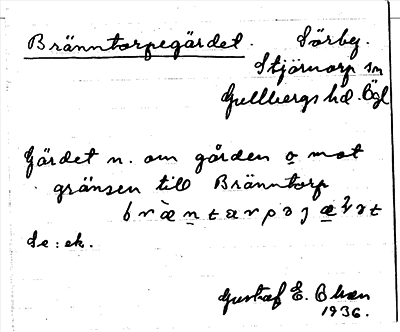 Bränntorpegärdet. Sörby.
Stjärnorp sn
Gullbergs hd. Ögl
Gärdet n. om gården o mot
gränsen till Bränntorp
Se: ek.
Gustaf E. Olsson
1936.